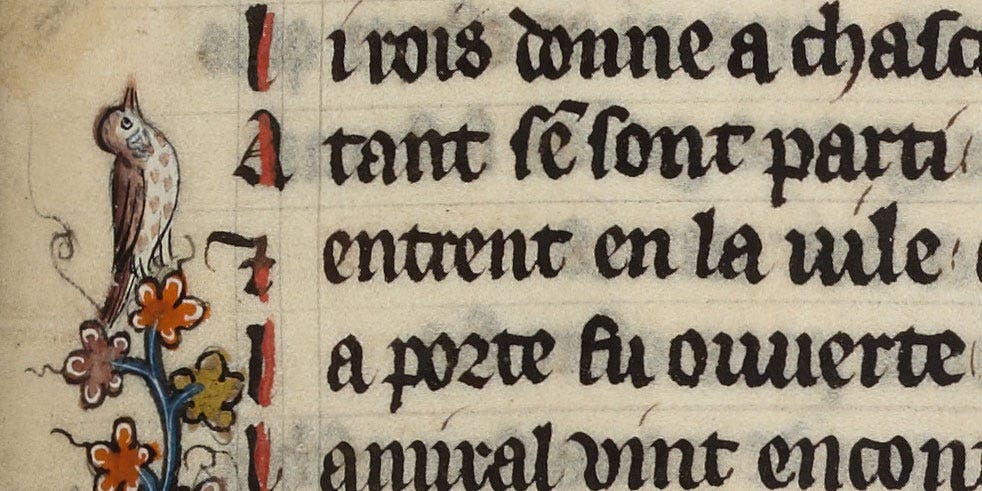 l i rois donne a chasc
A tant sē sont parti
⁊ entrent en la uile
l a porte fu ouuerte
l amiral vint encon